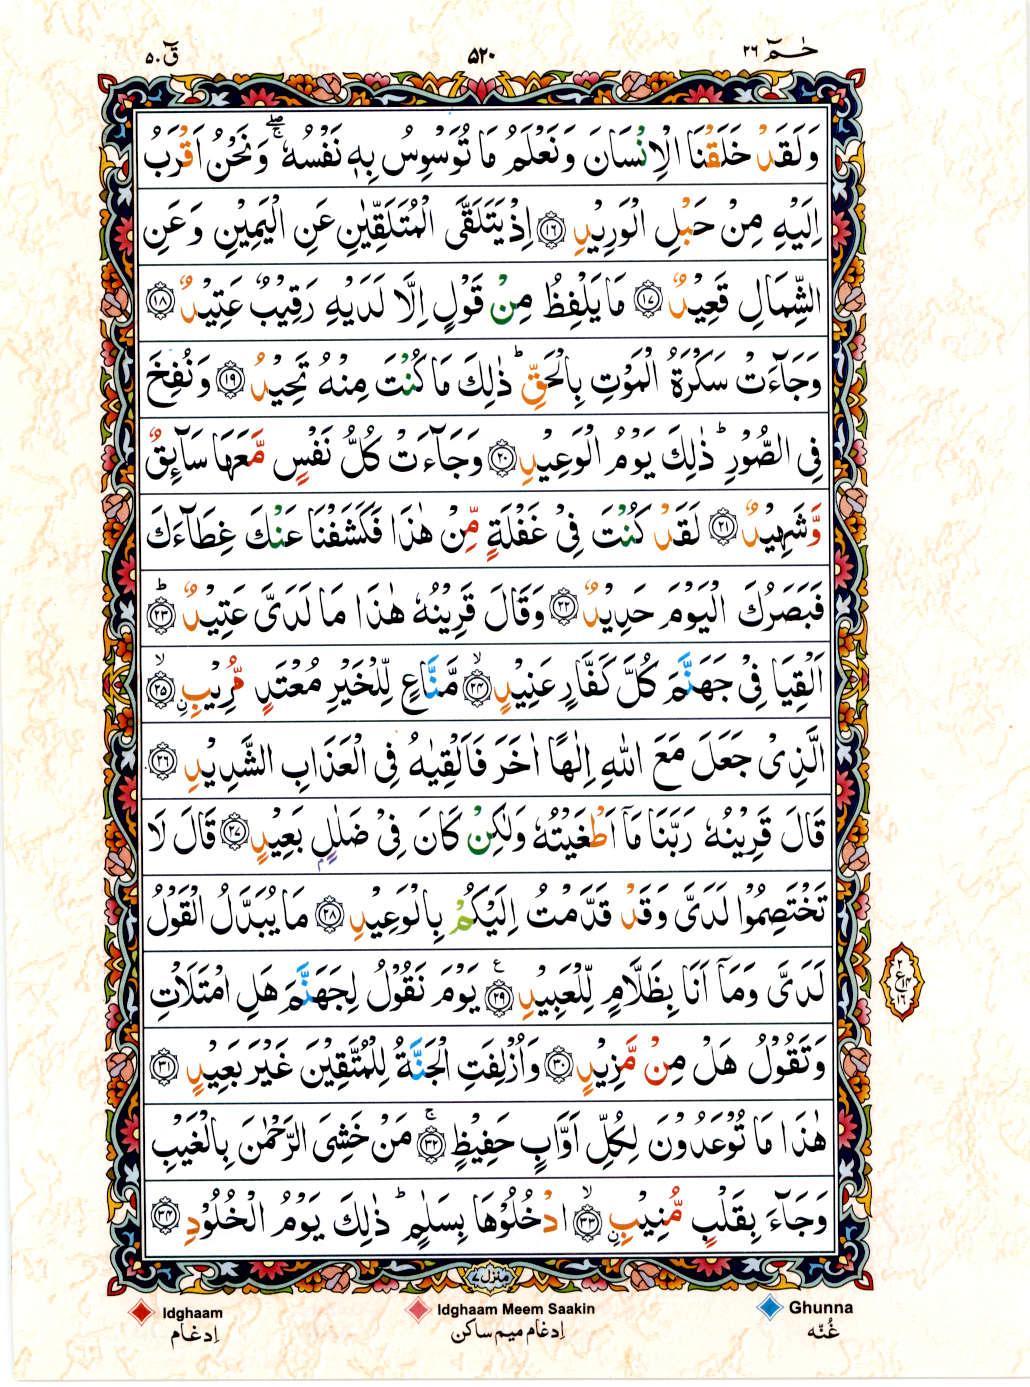 حٰـمٓ ۲۶
۵۲۰
قٓ ۵۰
وَلَقَدْ خَلَقْنَا الْاِنْسَانَ وَنَعْلَمُ مَا تُوَسْوِسُ بِهٖ نَفْسُهٗ ۖۚ وَنَحْنُ اَقْرَبُ
اِلَيْهِ مِنْ حَبْلِ الْوَرِيْدِ ﴿۱۶﴾ اِذْ يَتَلَقَّى الْمُتَلَقِّيٰنِ عَنِ الْيَمِيْنِ وَعَنِ
الشِّمَالِ قَعِيْدٌ ﴿۱۷﴾ مَا يَلْفِظُ مِنْ قَوْلٍ اِلَّا لَدَيْهِ رَقِيْبٌ عَتِيْدٌ ﴿۱۸﴾
وَجَآءَتْ سَكْرَةُ الْمَوْتِ بِالْحَقِّ ؕ ذٰلِكَ مَا كُنْتَ مِنْهُ تَحِيْدُ ﴿۱۹﴾ وَنُفِخَ
فِى الصُّوْرِ ؕ ذٰلِكَ يَوْمُ الْوَعِيْدِ ﴿۲۰﴾ وَجَآءَتْ كُلُّ نَفْسٍ مَّعَهَا سَآئِقٌ
وَّشَهِيْدٌ ﴿۲۱﴾ لَقَدْ كُنْتَ فِىْ غَفْلَةٍ مِّنْ هٰذَا فَكَشَفْنَا عَنْكَ غِطَآءَكَ
فَبَصَرُكَ الْيَوْمَ حَدِيْدٌ ﴿۲۲﴾ وَقَالَ قَرِيْنُهٗ هٰذَا مَا لَدَىَّ عَتِيْدٌ ؕ﴿۲۳﴾
اَلْقِيَا فِىْ جَهَنَّمَ كُلَّ كَفَّارٍ عَنِيْدٍ ۙ﴿۲۴﴾ مَّنَّاعٍ لِّلْخَيْرِ مُعْتَدٍ مُّرِيْبِ ۙ﴿۲۵﴾
الَّذِىْ جَعَلَ مَعَ اللّٰهِ اِلٰهًا اٰخَرَ فَاَلْقِيٰهُ فِى الْعَذَابِ الشَّدِيْدِ ﴿۲۶﴾
قَالَ قَرِيْنُهٗ رَبَّنَا مَاۤ اَطْغَيْتُهٗ وَلٰكِنْ كَانَ فِىْ ضَلٰلٍۢ بَعِيْدٍ ﴿۲۷﴾ قَالَ لَا
تَخْتَصِمُوْا لَدَىَّ وَقَدْ قَدَّمْتُ اِلَيْكُمْ بِالْوَعِيْدِ ﴿۲۸﴾ مَا يُبَدَّلُ الْقَوْلُ
لَدَىَّ وَمَاۤ اَنَا بِظَلَّامٍ لِّلْعَبِيْدِ ﴿۲۹﴾ يَوْمَ نَقُوْلُ لِجَهَنَّمَ هَلِ امْتَلَاْتِ
وَتَقُوْلُ هَلْ مِنْ مَّزِيْدٍ ﴿۳۰﴾ وَاُزْلِفَتِ الْجَنَّةُ لِلْمُتَّقِيْنَ غَيْرَ بَعِيْدٍ ﴿۳۱﴾
هٰذَا مَا تُوْعَدُوْنَ لِكُلِّ اَوَّابٍ حَفِيْظٍ ۚ﴿۳۲﴾ مَنْ خَشِىَ الرَّحْمٰنَ بِالْغَيْبِ
وَجَآءَ بِقَلْبٍ مُّنِيْبِ ۙ﴿۳۳﴾ ادْخُلُوْهَا بِسَلٰمٍ ؕ ذٰلِكَ يَوْمُ الْخُلُوْدِ ﴿۳۴﴾
منزل ۷
Idghaam
Idghaam Meem Saakin
Ghunna
اِدغام
اِدغام میم ساکن
غُنّه